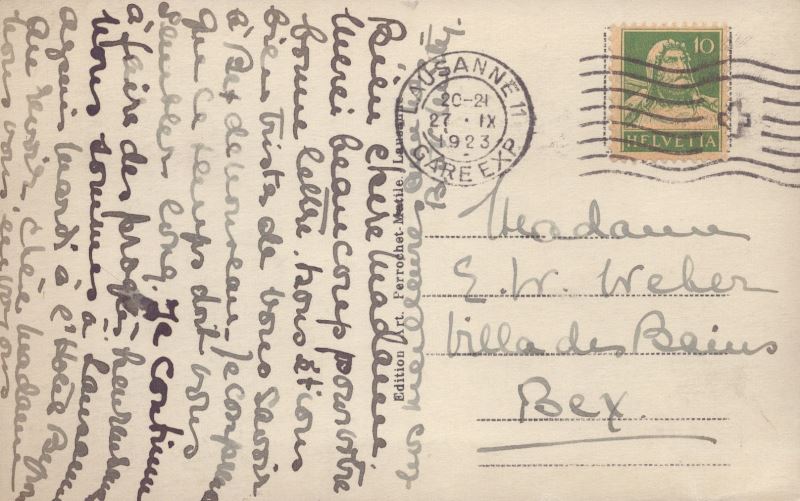 Bien chère Madame
Merci beaucoup pour votre
bonne lettre. Nous étions
bien tristes de vous savoir
à Bex de nouveau. Je comprends
que ce temps doit vous
sembler long. Je continue
à faire des progrès, heureusement
Nous sommes à Lausanne
depuis mardi à l'Hôtel
Au revoir, chère Madame
nous vous envoyons
nos meilleures
Edition Art. Perrochet-Matile, Lausanne
LAUSANNE 11
20-21
27 · IX
1923
GARE EXP.
10
HELVETIA
Madame
E. W. Weber
Villa des Bains
Bex.